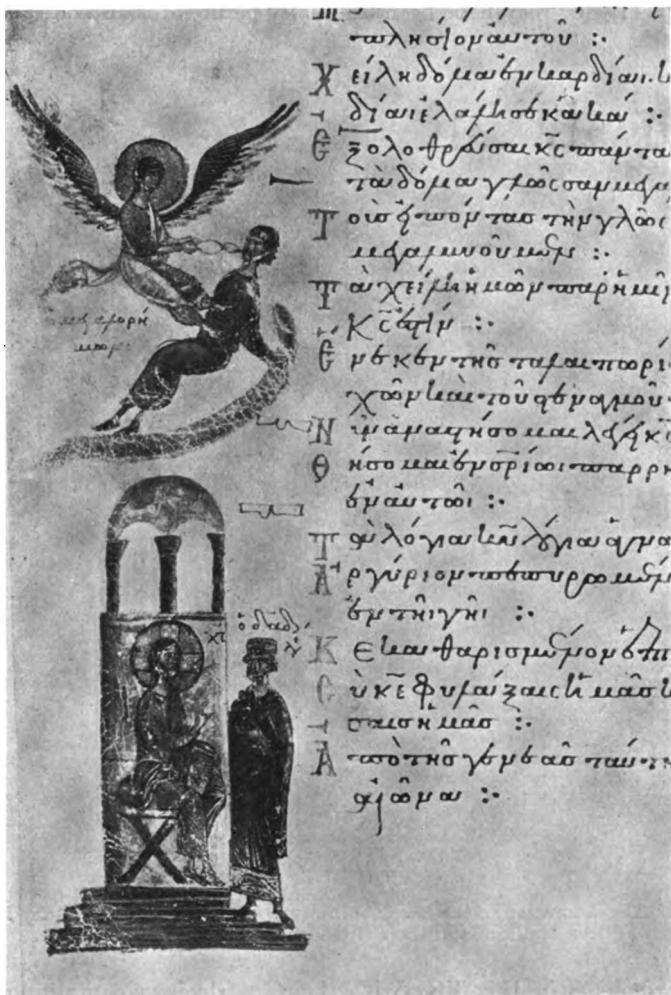 πλησίον αὐτοῦ :·
Χείλη δόλια ἐν καρδίαι κ
δίαι ἐλάλησε κακά :·
Ἐξολοθρεύσαι κ̅ς̅ πάντα
τὰ δόλια γλῶσσαν μεγα
Τοὺς εἰπόντας τὴν γλῶσ
μεγαλυνοῦμεν :·
Τὰ χείλη ἡμῶν παρ ἡμῖ
κ̅ς̅ ἐστίν :·
Ἕνεκεν τῆς ταλαιπωρί
χῶν καὶ τοῦ στεναγμοῦ
Νῦν ἀναστήσομαι λέγει κ̅ς̅
Θήσομαι ἐν σ̅ρίωι παρρη
ἐν αὐτῶι :·
Τὰ λόγια κ̅υ̅ λόγια ἁγνα
Ἀργύριον πεπυρωμέν
ἐν τῆι γῆι :·
Κεκαθαρισμένον ἑπτ
Σὺ κ̅ε̅ φυλάξαις ἡμᾶς κ
σαις ἡμᾶς :·
Ἀπὸ τῆς γενεᾶς ταύτη
αἰῶνα :·
ὁ δα̅δ̅
χ̅ς̅